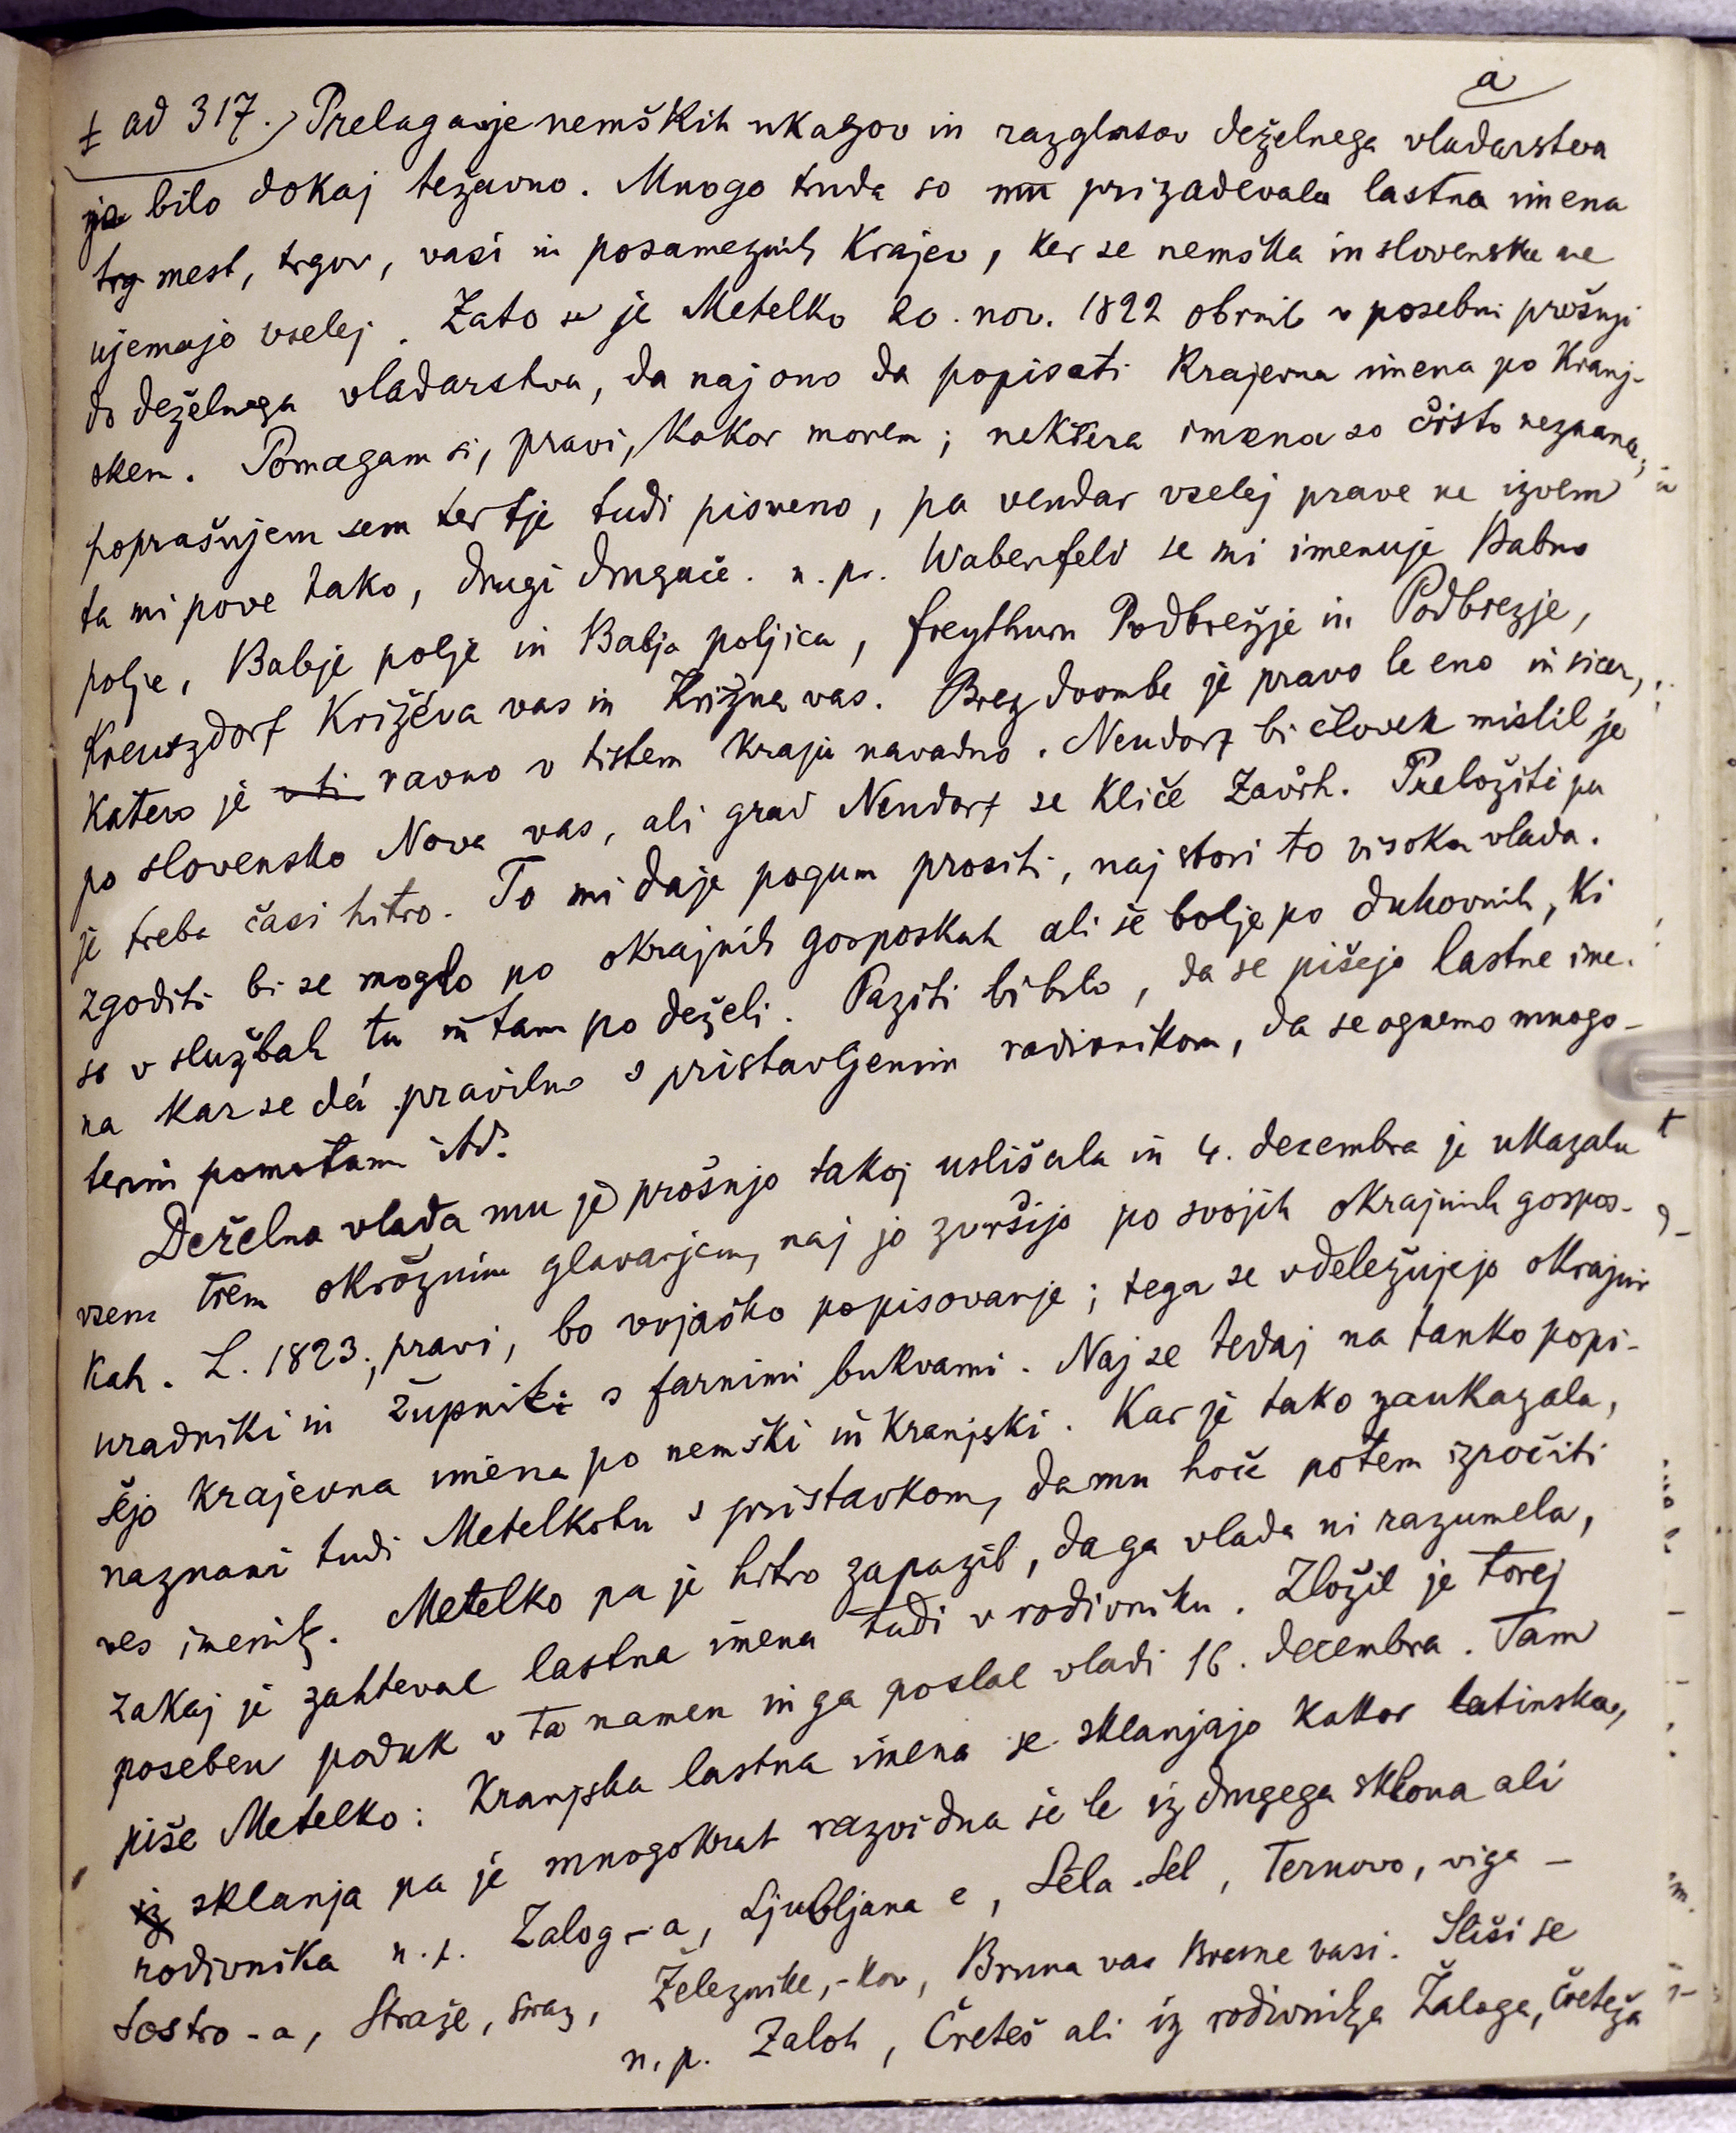 a
± ad 317. Prelaganje nemških ukazov in razglasov deželnega vladarstva
je bilo dokaj težavno. Mnogo truda so mu prizadevala lastna imena
trg mest, trgov, vasi in posameznih krajev, ker se nemška in slovenska ne
ujemajo vselej. Zato se je Metelko 20. nov. 1822 obrnil v posebni prošnji
do deželnega vladarstva, da naj ono da popisati krajevna imena po Kranj-
skem. Pomagam si, pravi, kakor morem; nektera imena so čisto neznana;
poprašujem sem ter tje tudi pismeno, pa vendar vselej prave ne izvem
ta mi pove tako, drugi drugače. n. pr. Waberfeld se mi imenuje Babno
polje, Babje polje in Babja poljica, Freythurn Podbrežje in Podbrezje,
Kreuzdorf Križeva vas in Križna vas. Brez dvombe je pravo le eno in sicer,
katero je v ti ravno v tistem kraju navadno. Neudorf bi človek mislil je
po slovensko Nova vas, ali grad Neudorf se kliče Završh. Preložiti pa
je treba časi hitro. To mi daje pogum prositi, naj stori to visoka vlada.
Zgoditi bi se moglo po okrajnih gosposkah ali še bolje po duhovnih, ki
so v službah tu in tam po deželi. Paziti bi bilo, da se pišejo lastne ime-
na kar se dá pravilno s pristavljenim rodivnikom, da se ognemo mnogo-
terim pomotam itd.
Deželna vlada mu je prošnjo takoj uslišala in 4. decembra je ukazala
vsem trem okrožnim glavarjem, naj jo zvršijo po svojih okrajnih gospos-
kah. L. 1823., pravi, bo vojaško popisovanje; tega se vdeležujejo okrajni
uradniki in župniki s farnimi bukvami. Naj se tedaj na tanko popi-
šejo krajevna imena po nemški in kranjski. Kar je tako zaukazala,
naznani tudi Metelkotu s pristavkom, da mu hoče potem izročiti
ves imenik. Metelko pa je hitro zapazil, da ga vlada ni razumela,
zakaj je zahteval lastna imena tudi v rodivniku. Zložil je torej
poseben poduk v ta namen in ga poslal vladi 16. decembra. Tam
piše Metelko: Kranjska lastna imena se sklanjajo kakor latinska,
iz sklanja pa je mnogokrat razvidna še le iz drugega sklona ali
rodivnika n. p. Zalog -a, Ljubljana e, Sela Sel, Ternovo, viga -
Sostro -a, Straže, Straž, Železnike, -kov, Bruna vas Brune vasi. Sliši se
n. p. Zaloh, Čreteš ali iz rodivnika Žaloga, Čreteža